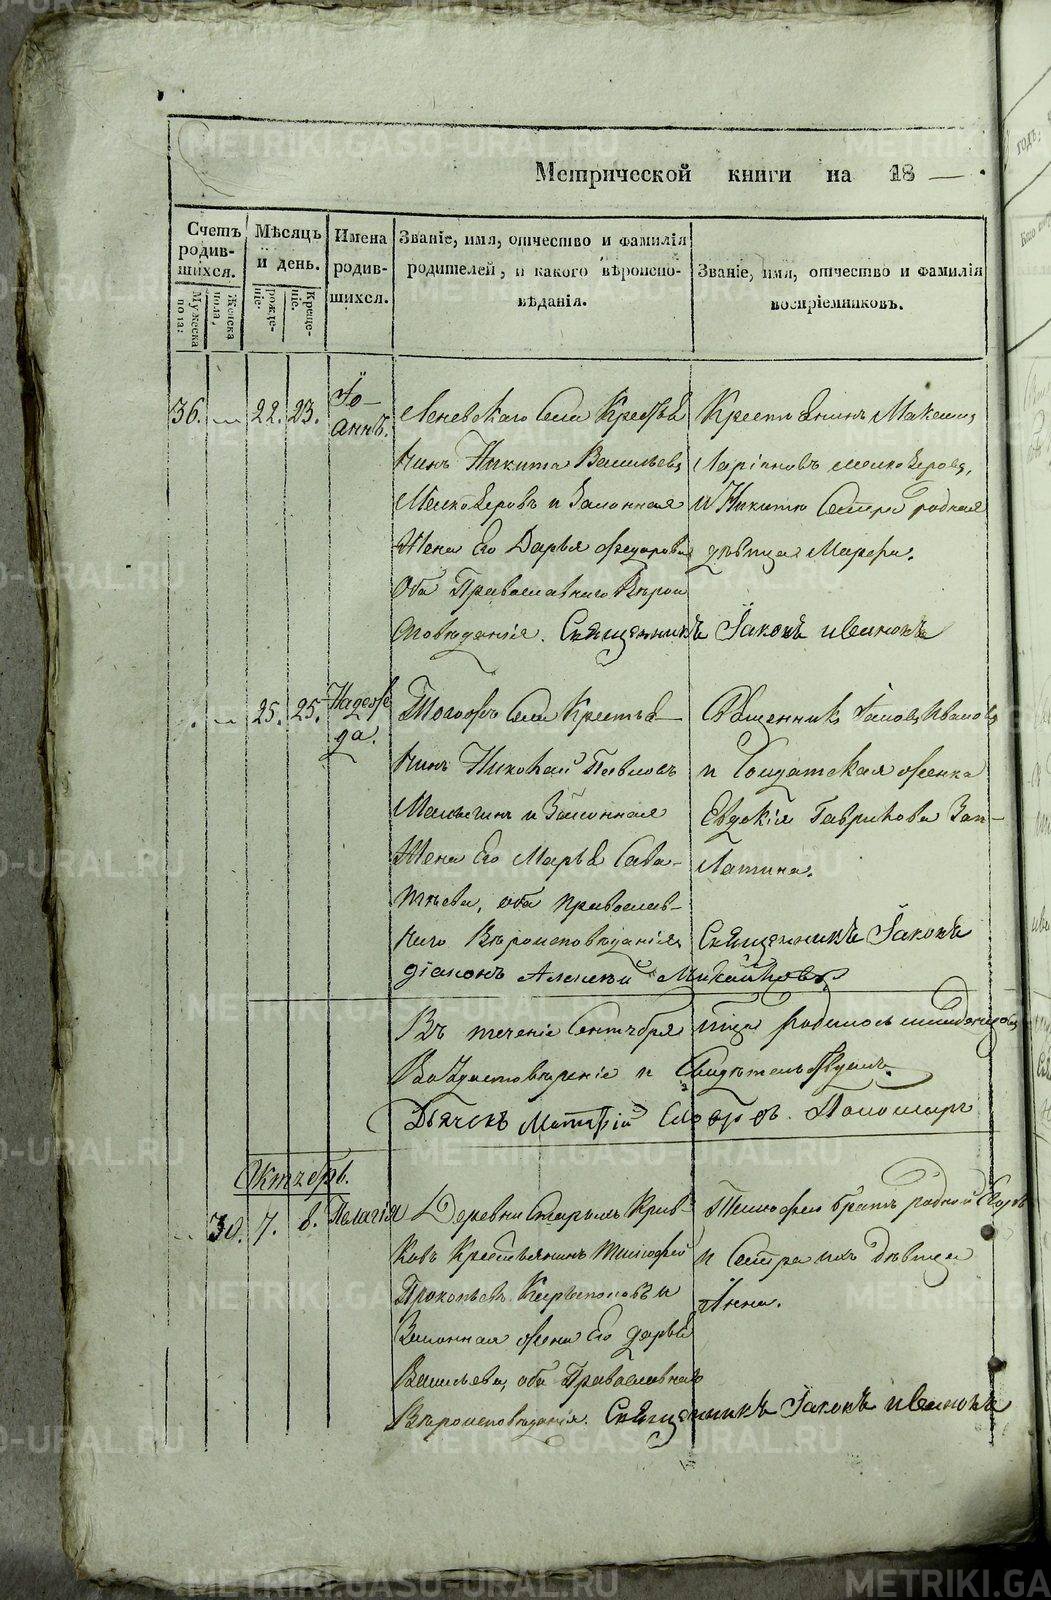 Метрической книги на 18 —
Счетъ родившихся.
Мужеска пола.
Женска пола.
Мѣсяцъ и день.
рожденіе.
Крещеніе.
Имена родившихся.
Званіе, имя, отчество и фамилія
родителей, и какого вѣроиспо-
вѣданія.
Званіе, имя, отчество и фамилія
воспріемниковъ.
36. — 22. 23. Іо-
аннъ.
Леневскаго Села Крестья
нинъ Никита Васильевъ
Мелкозеровъ и Законная
Жена Его Дарья Федорова
Оба Православнаго Вѣрои
сповѣданія. Священникъ Іаковъ Ивановъ
Крестьянинъ Максимъ
Ларіоновъ Мелкозеровъ,
и Никиты Сестра родная
дѣвица Марфа.
— 25. 25. Надеж
да.
Тогожъ Села Крестья—
нинъ Николай Павловъ
и Законная
Жена Его Марья Сава-
тѣева, оба православ-
наго Вѣроисповѣданія
діаконъ Алексѣй Михайловъ
Священникъ Іаковъ Ивановъ
и Солдатская женка
Евдокія Гаврилова Зап—
латина.
Священникъ Іаковъ
Въ теченіе Сентября
Въ Удостовѣреніе и
Дьячокъ Пономарь
Октябрь.
30. 7. 8. Пелагія
Деревни Старыхъ Крив-
ковъ Крестьянинъ Тимофей
Прокопьевъ и
Законная жена Его Дарья
Васильева, оба Православнаго
Вѣроисповѣданія. Священникъ Іаковъ Ивановъ
Тимофею братъ родной
и Сестра ихъ Дѣвица
Анна.
METRIKI.GASO-URAL.RU